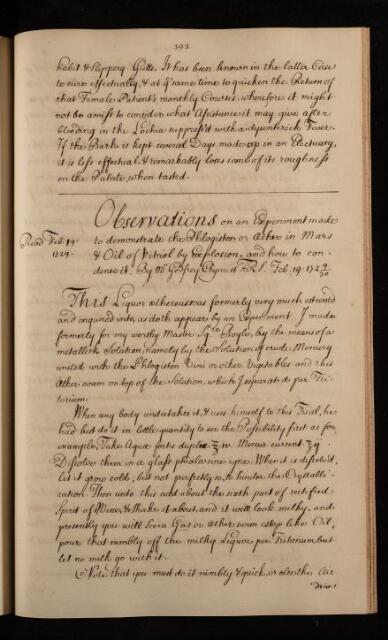 393.
habit & Slippery Gutts. It has been known in the latter Case
to cure effectually, & at yᵉ same time to quicken the Return of
that Female Patient's monthly Courses wherefore it might
not be amiss to consider what Assistance it may give after
bleeding in the Lochia suppress'd with a dysenterick Fever.
If the Bark is kept several Days made up in an Electuary,
it is less effectual, & remarkably loses some of its roughness
on the Palate when tasted.
Observations on an Experiment made
Read Feb. 19.
1729.
to demonstrate the Phlogiston or Æther in Mars
& Oil of Vitriol by Explosion, and how to con-
dente it. By Mr Godfrey Chym. & F.R.S. Feb. 19. 1729/30
This Liquor æthereus was formerly very much admir'd
and enquired into, as doth appear by an Experiment I made
formerly for my worthy Master Sqr. Boyle, by the means of a
metallick Solution, namely by the Solution of crude Mercury
united with the Phlogiston Vini or other Vegetables and this
Æther swam on top of the Solution, which I separate per Tri-
torium.
When any body undertakes it, & uses himself to this Trial, he
had but do it in little quantity to see the Possibility first as for
example, Take Aqua fortis duplex ℥iv. Mercur. current. ℥ij.
Dissolve them in a glass phiala sine igne. When it is dissolv'd,
let it grow cold, but not perfectly so, to hinder the Crystalli-
zation. Then unto this add about the sixth part of rectified
Spirit of Wine, & shake it about, and it will look milky, and
presently you will see a Gas or Æther swim atop like Oil,
pour that nimbly off the milky Liquor per Tritorium, but
let no milk go with it.
Note that you must do it nimbly & quick, or else the Air